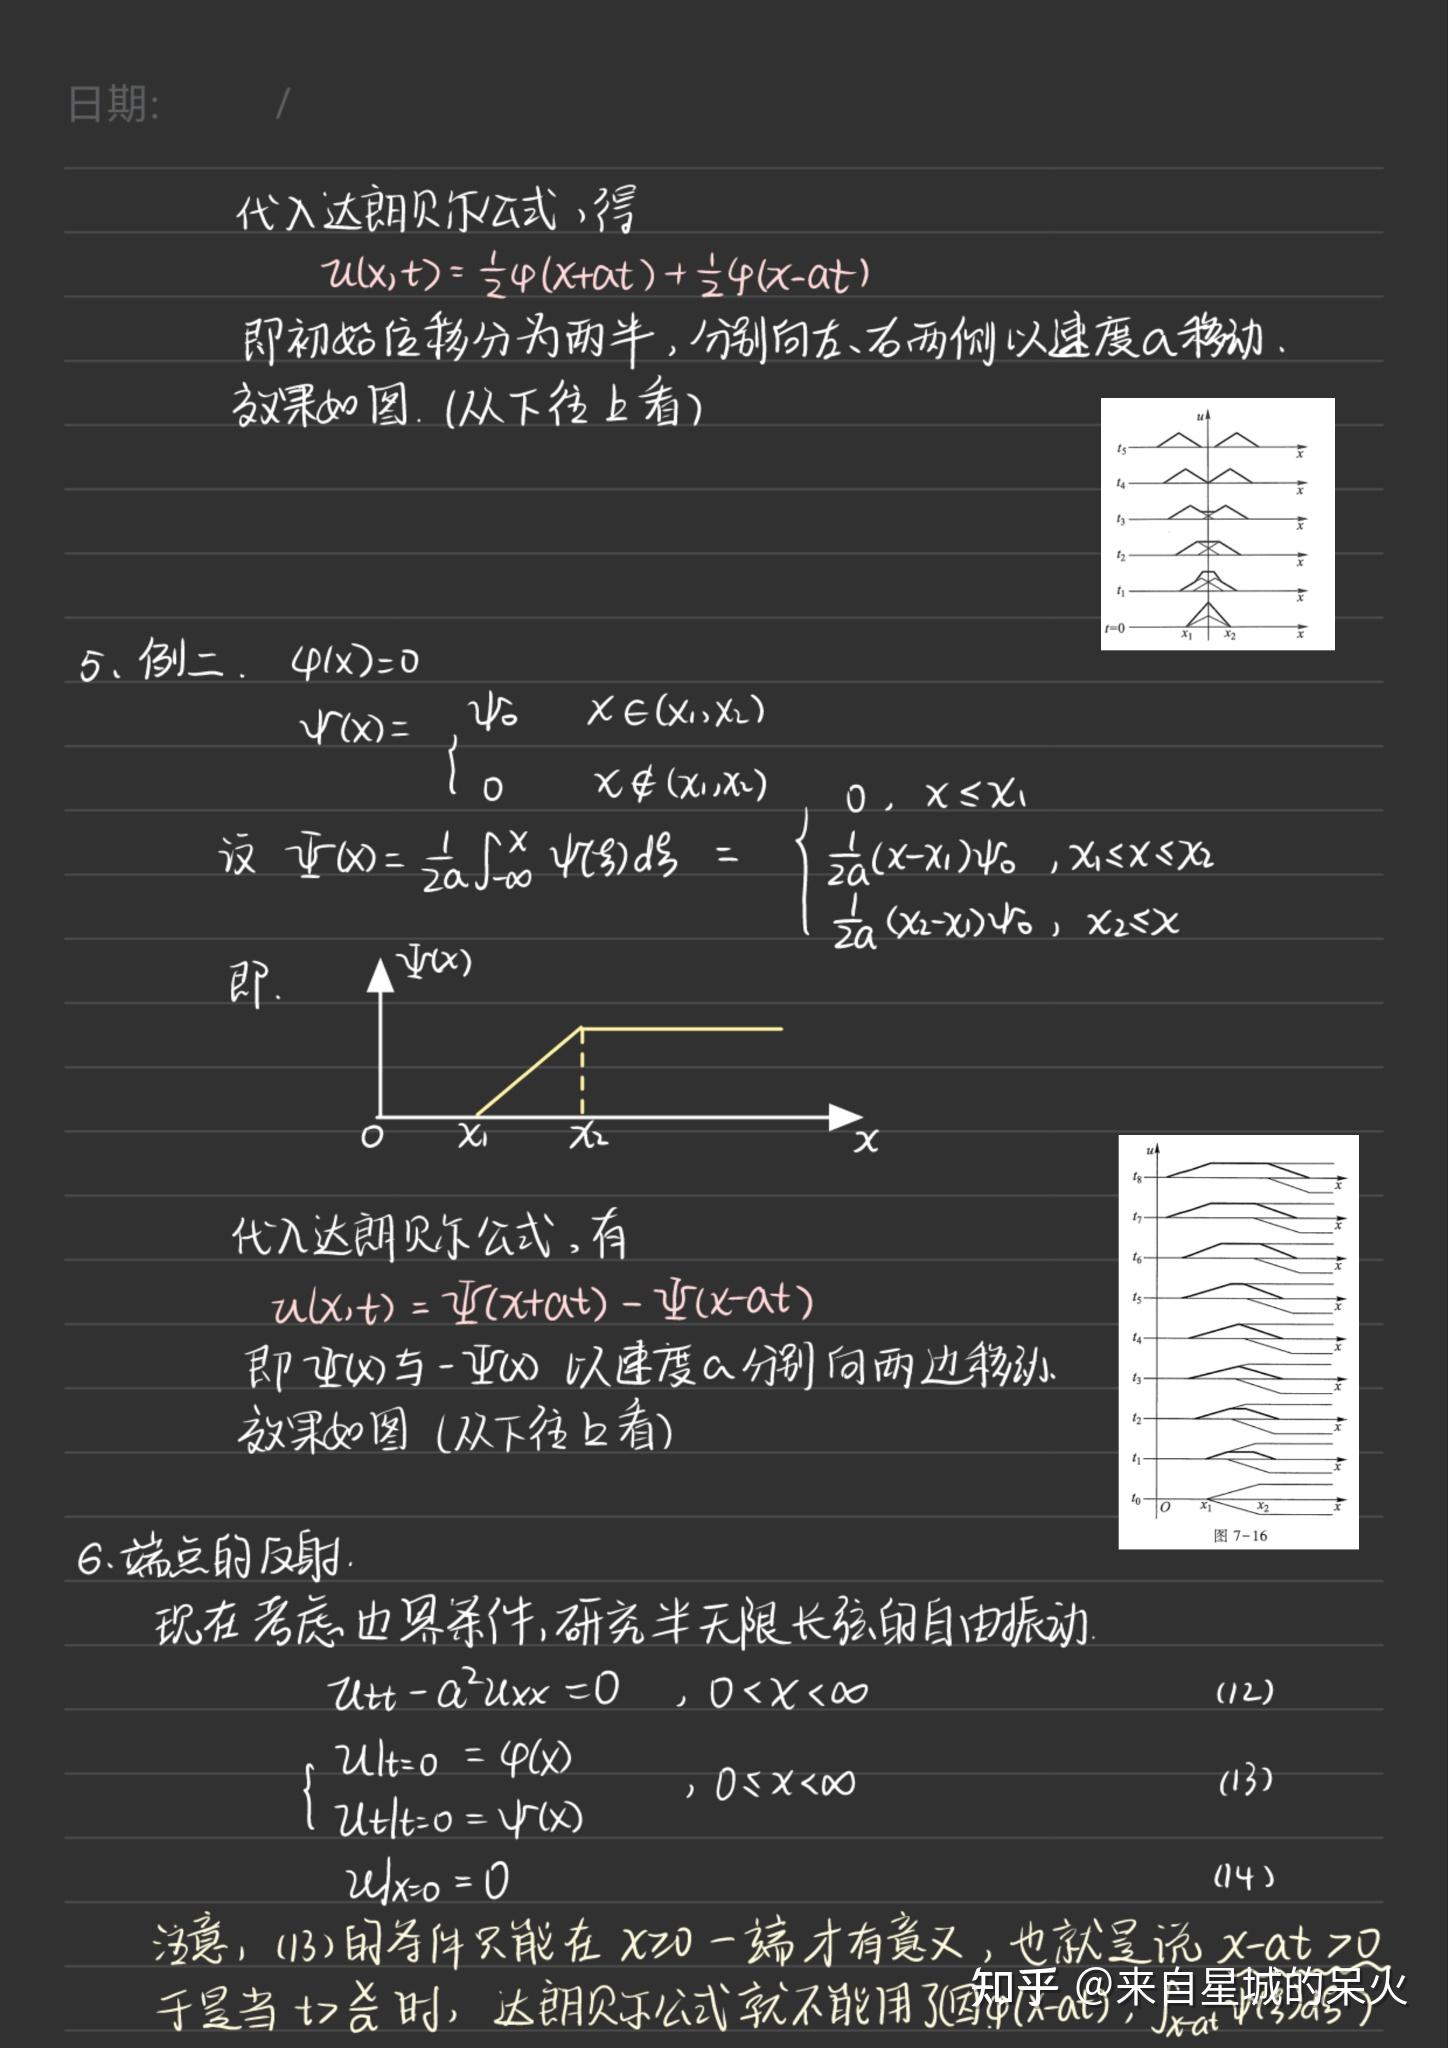 日期: /
代入达朗贝尔公式,得
u(x,t)=½φ(x+at)+½φ(x-at)
即初始位移分为两半,分别向左、右两侧以速度a移动.
效果如图.(从下往上看)
u
t₅ x
t₄ x
t₃ x
t₂ x
t₁ x
t=0 x₁ x₂ x
5、例二. φ(x)=0
ψ(x)= { ψ₀ x∈(x₁,x₂)
0 x∉(x₁,x₂)
设 Ψ(x)= 1/2a ∫_{-∞}^{x} ψ(ξ)dξ = { 0, x≤x₁
1/2a (x-x₁)ψ₀, x₁≤x≤x₂
1/2a (x₂-x₁)ψ₀, x₂≤x
即. Ψ(x)
0 x₁ x₂ x
代入达朗贝尔公式,有
u(x,t)=Ψ(x+at)-Ψ(x-at)
即Ψ(x)与-Ψ(x) 以速度a分别向两边移动.
效果如图(从下往上看)
u
t₈ x
t₇ x
t₆ x
t₅ x
t₄ x
t₃ x
t₂ x
t₁ x
t₀ O x₁ x₂ x
图 7-16
6.端点的反射.
现在考虑边界条件,研究半无限长弦的自由振动.
utt-a²uxx=0 , 0<x<∞ (12)
{ u|t=0 =φ(x)
ut|t=0 =ψ(x) , 0≤x<∞ (13)
u|x=0 =0 (14)
注意,(13)的条件只能在x≥0一端才有意义,也就是说x-at>0
于是当t>x/a时,达朗贝尔公式就不能用了(因φ(x-at), ∫x-at ψ(ξ)dξ)
知乎 @来自星城的呆火